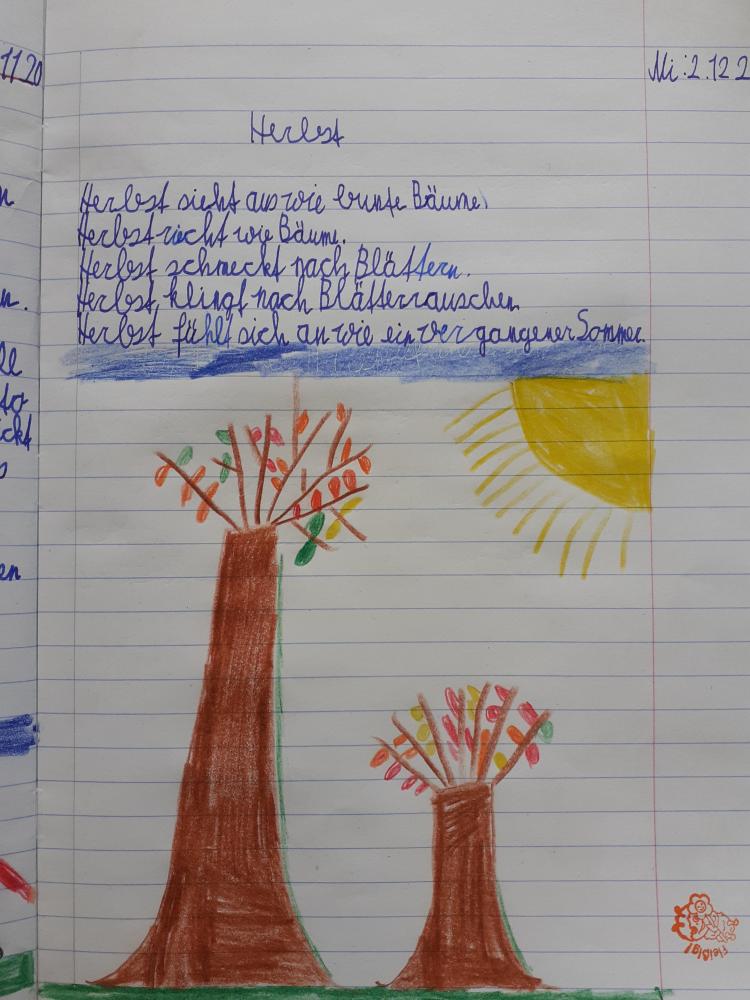 1120
Mi: 2.12 2
Herbst
Herbst sieht aus wie bunte Bäume.
Herbst riecht wie Bäume.
Herbst schmeckt nach Blättern.
Herbst klingt nach Blätterrauschen.
Herbst fühlt sich an wie ein vergangener Sommer.
n
n.
ckt
en
Fleißig!